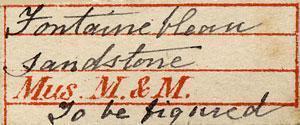 Fontainebleau
sandstone
Mus. M. & M.
To be figured